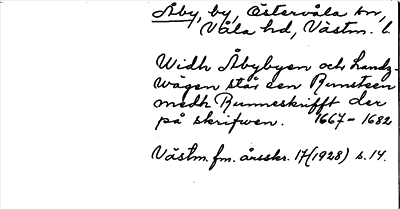 Åby, by, Östervåla sn,
Våla hd, Västm. l.
Widh Åbybyen och Landz-
wägen står een Runsteen
medh Runneskrifft der
på skrifwen. 1667-1682
Västm. fm. årsskr. 17 (1928) s. 14.